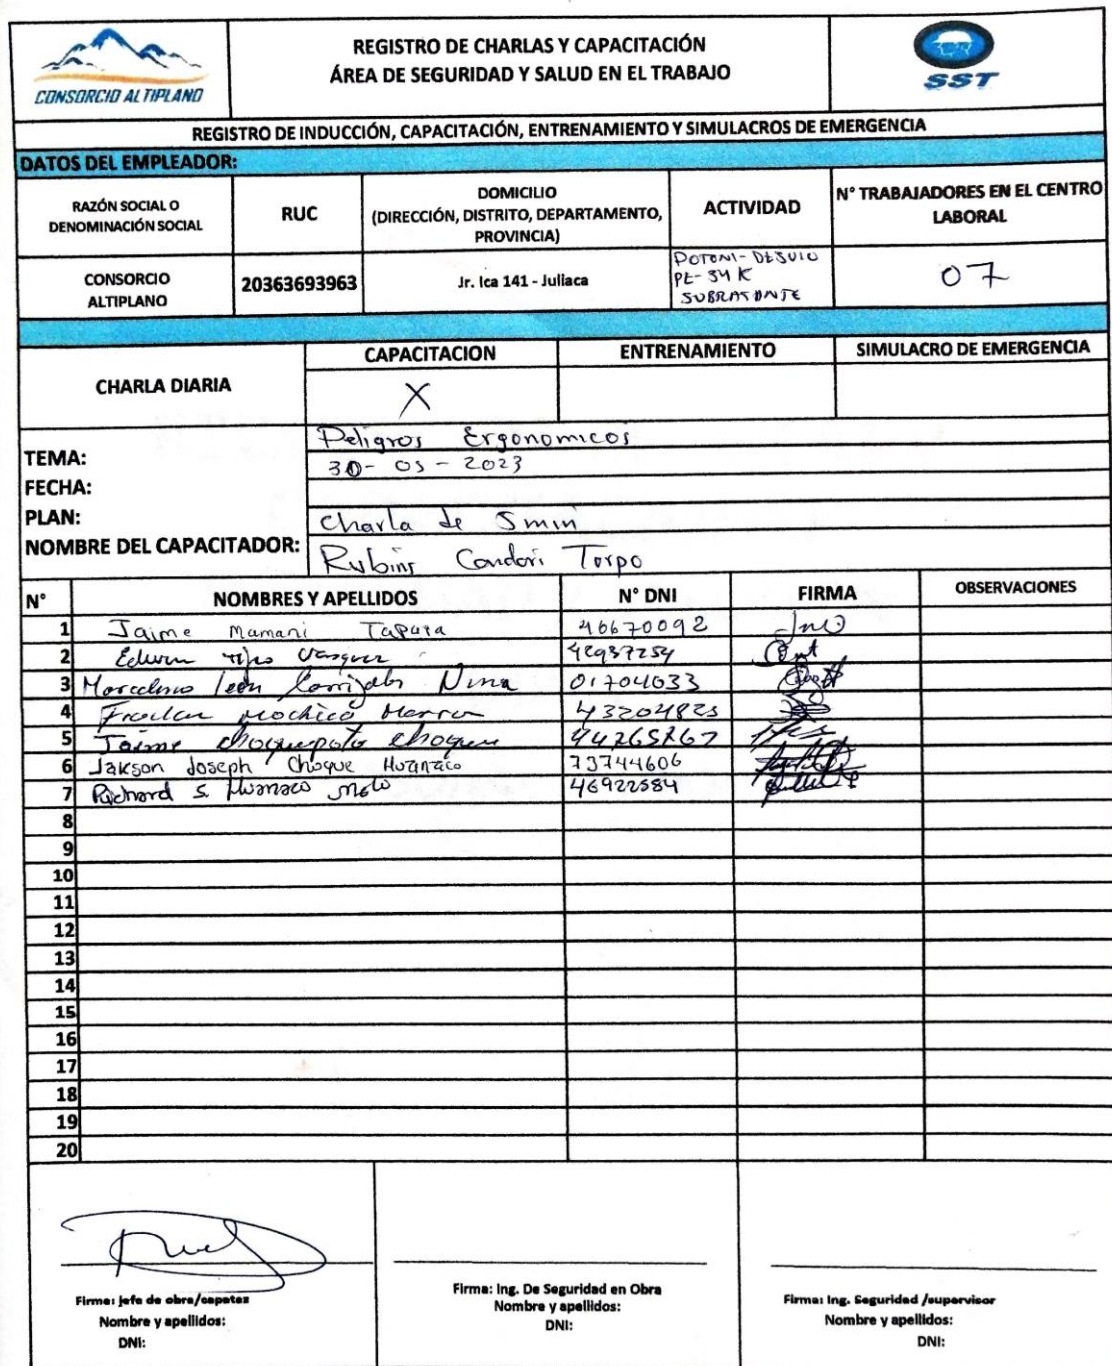 CONSORCIO ALTIPLANO
REGISTRO DE CHARLAS Y CAPACITACIÓN
ÁREA DE SEGURIDAD Y SALUD EN EL TRABAJO
SST
REGISTRO DE INDUCCIÓN, CAPACITACIÓN, ENTRENAMIENTO Y SIMULACROS DE EMERGENCIA
DATOS DEL EMPLEADOR:
RAZÓN SOCIAL O
DENOMINACIÓN SOCIAL
RUC
DOMICILIO
(DIRECCIÓN, DISTRITO, DEPARTAMENTO,
PROVINCIA)
ACTIVIDAD
N° TRABAJADORES EN EL CENTRO
LABORAL
CONSORCIO
ALTIPLANO
20363693963
Jr. Ica 141 - Juliaca
POTONI - DESVIO
PE-34 K
SUBRASANTE
07
CHARLA DIARIA
CAPACITACION
ENTRENAMIENTO
SIMULACRO DE EMERGENCIA
X
TEMA: Peligros Ergonomicos
FECHA: 30-05-2023
PLAN: Charla de 5 min
NOMBRE DEL CAPACITADOR: Rubins Condori Torpo
N° NOMBRES Y APELLIDOS N° DNI FIRMA OBSERVACIONES
1 Jaime Mamani Tapara 40670092
2 Edwin 42937254
3 Marcelino León Nina 01704033
4 43204825
5 Jaime choquepata choque 44265267
6 Jakson Joseph Choque Huanaco 73744606
7 Richard S. Huanaco 46922584
8
9
10
11
12
13
14
15
16
17
18
19
20
Firma: jefe de obra/capataz
Nombre y apellidos:
DNI:
Firma: Ing. De Seguridad en Obra
Nombre y apellidos:
DNI:
Firma: Ing. Seguridad /supervisor
Nombre y apellidos:
DNI: